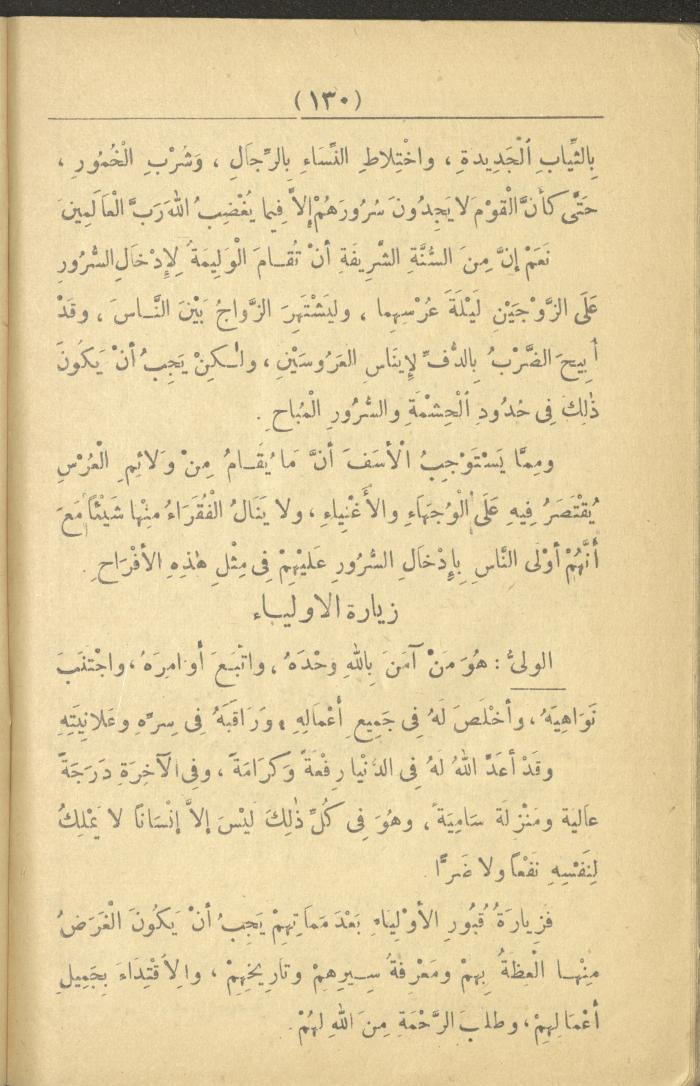 (١٣٠)
بِالثِّيَابِ الْجَدِيدَةِ ، واخْتِلاطِ النِّسَاءِ بِالرِّجالِ ، وَشُرْبِ الْخُمُورِ ،
حَتَّى كأنَّ الْقَوْمَ لا يَجِدُونَ سُرُورَهُمْ إلاَّ فِيما يُغْضِبُ اللهَ رَبَّ الْعَالَمِينَ
نَعَمْ إنَّ مِنَ السُّنَّةِ الشَّرِيفَةِ أنْ تُقَامَ الْوَلِيمَةُ لِإِدْخَالِ السُّرُورِ
عَلَى الزَّوْجَيْنِ لَيْلَةَ عُرْسِهِما ، ولِيَشْتَهِرَ الزَّواجُ بَيْنَ النَّاسِ ، وقَدْ
أُبِيحَ الضَّرْبُ بِالدُّفِّ لإِينَاسِ العَرُوسَيْنِ ، ولكِنْ يَجِبُ أنْ يَكُونَ
ذٰلِكَ فِى حُدُودِ الْحِشْمَةِ والسُّرُورِ الْمُبَاحِ .
ومِمَّا يَسْتَوْجِبُ الْأسَفَ أنَّ مَا يُقَامُ مِنْ وَلائِمِ الْعُرْسِ
يُقْتَصَرُ فِيهِ عَلَى الْوُجَهَاءِ والأَغْنِياءِ ، ولا يَنَالُ الْفُقَرَاءُ مِنْها شَيْئاً مَعَ
أنَّهُمْ أوْلَى النَّاسِ بِإِدْخَالِ السُّرُورِ عَلَيْهِمْ فِى مِثْلِ هٰذِهِ الأفْرَاحِ .
زيارة الاولياء
الولىُّ : هُوَ مَنْ آمَنَ بِاللهِ وحْدَهُ ، واتَّبَعَ أوَامِرَهُ ، واجْتَنَبَ
نَوَاهِيَهُ ، وأخْلَصَ لَهُ فِى جَمِيعِ أعْمَالِهِ ، وَرَاقَبَهُ فِى سِرِّهِ وعَلانِيَتِهِ
وقَدْ أعَدَّ اللهُ لهُ فِى الدُّنْيا رِفْعَةً وَكَرَامَةً ، وفِى الآخِرَةِ دَرَجَةً
عالِيَةً ومَنْزِلَةً سَامِيَةً ، وهُوَ فِى كُلِّ ذٰلِكَ لَيْسَ إلاَّ إنْسَانًا لا يَمْلِكُ
لِنَفْسِهِ نَفْعاً ولا ضَرًّا .
فزِيارَةُ قُبُورِ الأوْلِياءِ بَعْدَ مَمَاتِهِمْ يَجِبُ أنْ يَكُونَ الْغَرَضُ
مِنْها الْعِظَةُ بِهِمْ ومَعْرِفَةُ سِيَرِهِمْ وتَارِيخِهِمْ ، والِاقْتِدَاءَ بِجَمِيلِ
أعْمَالِهِمْ ، وطلَبَ الرَّحْمَةِ مِنَ اللهِ لهُمْ .